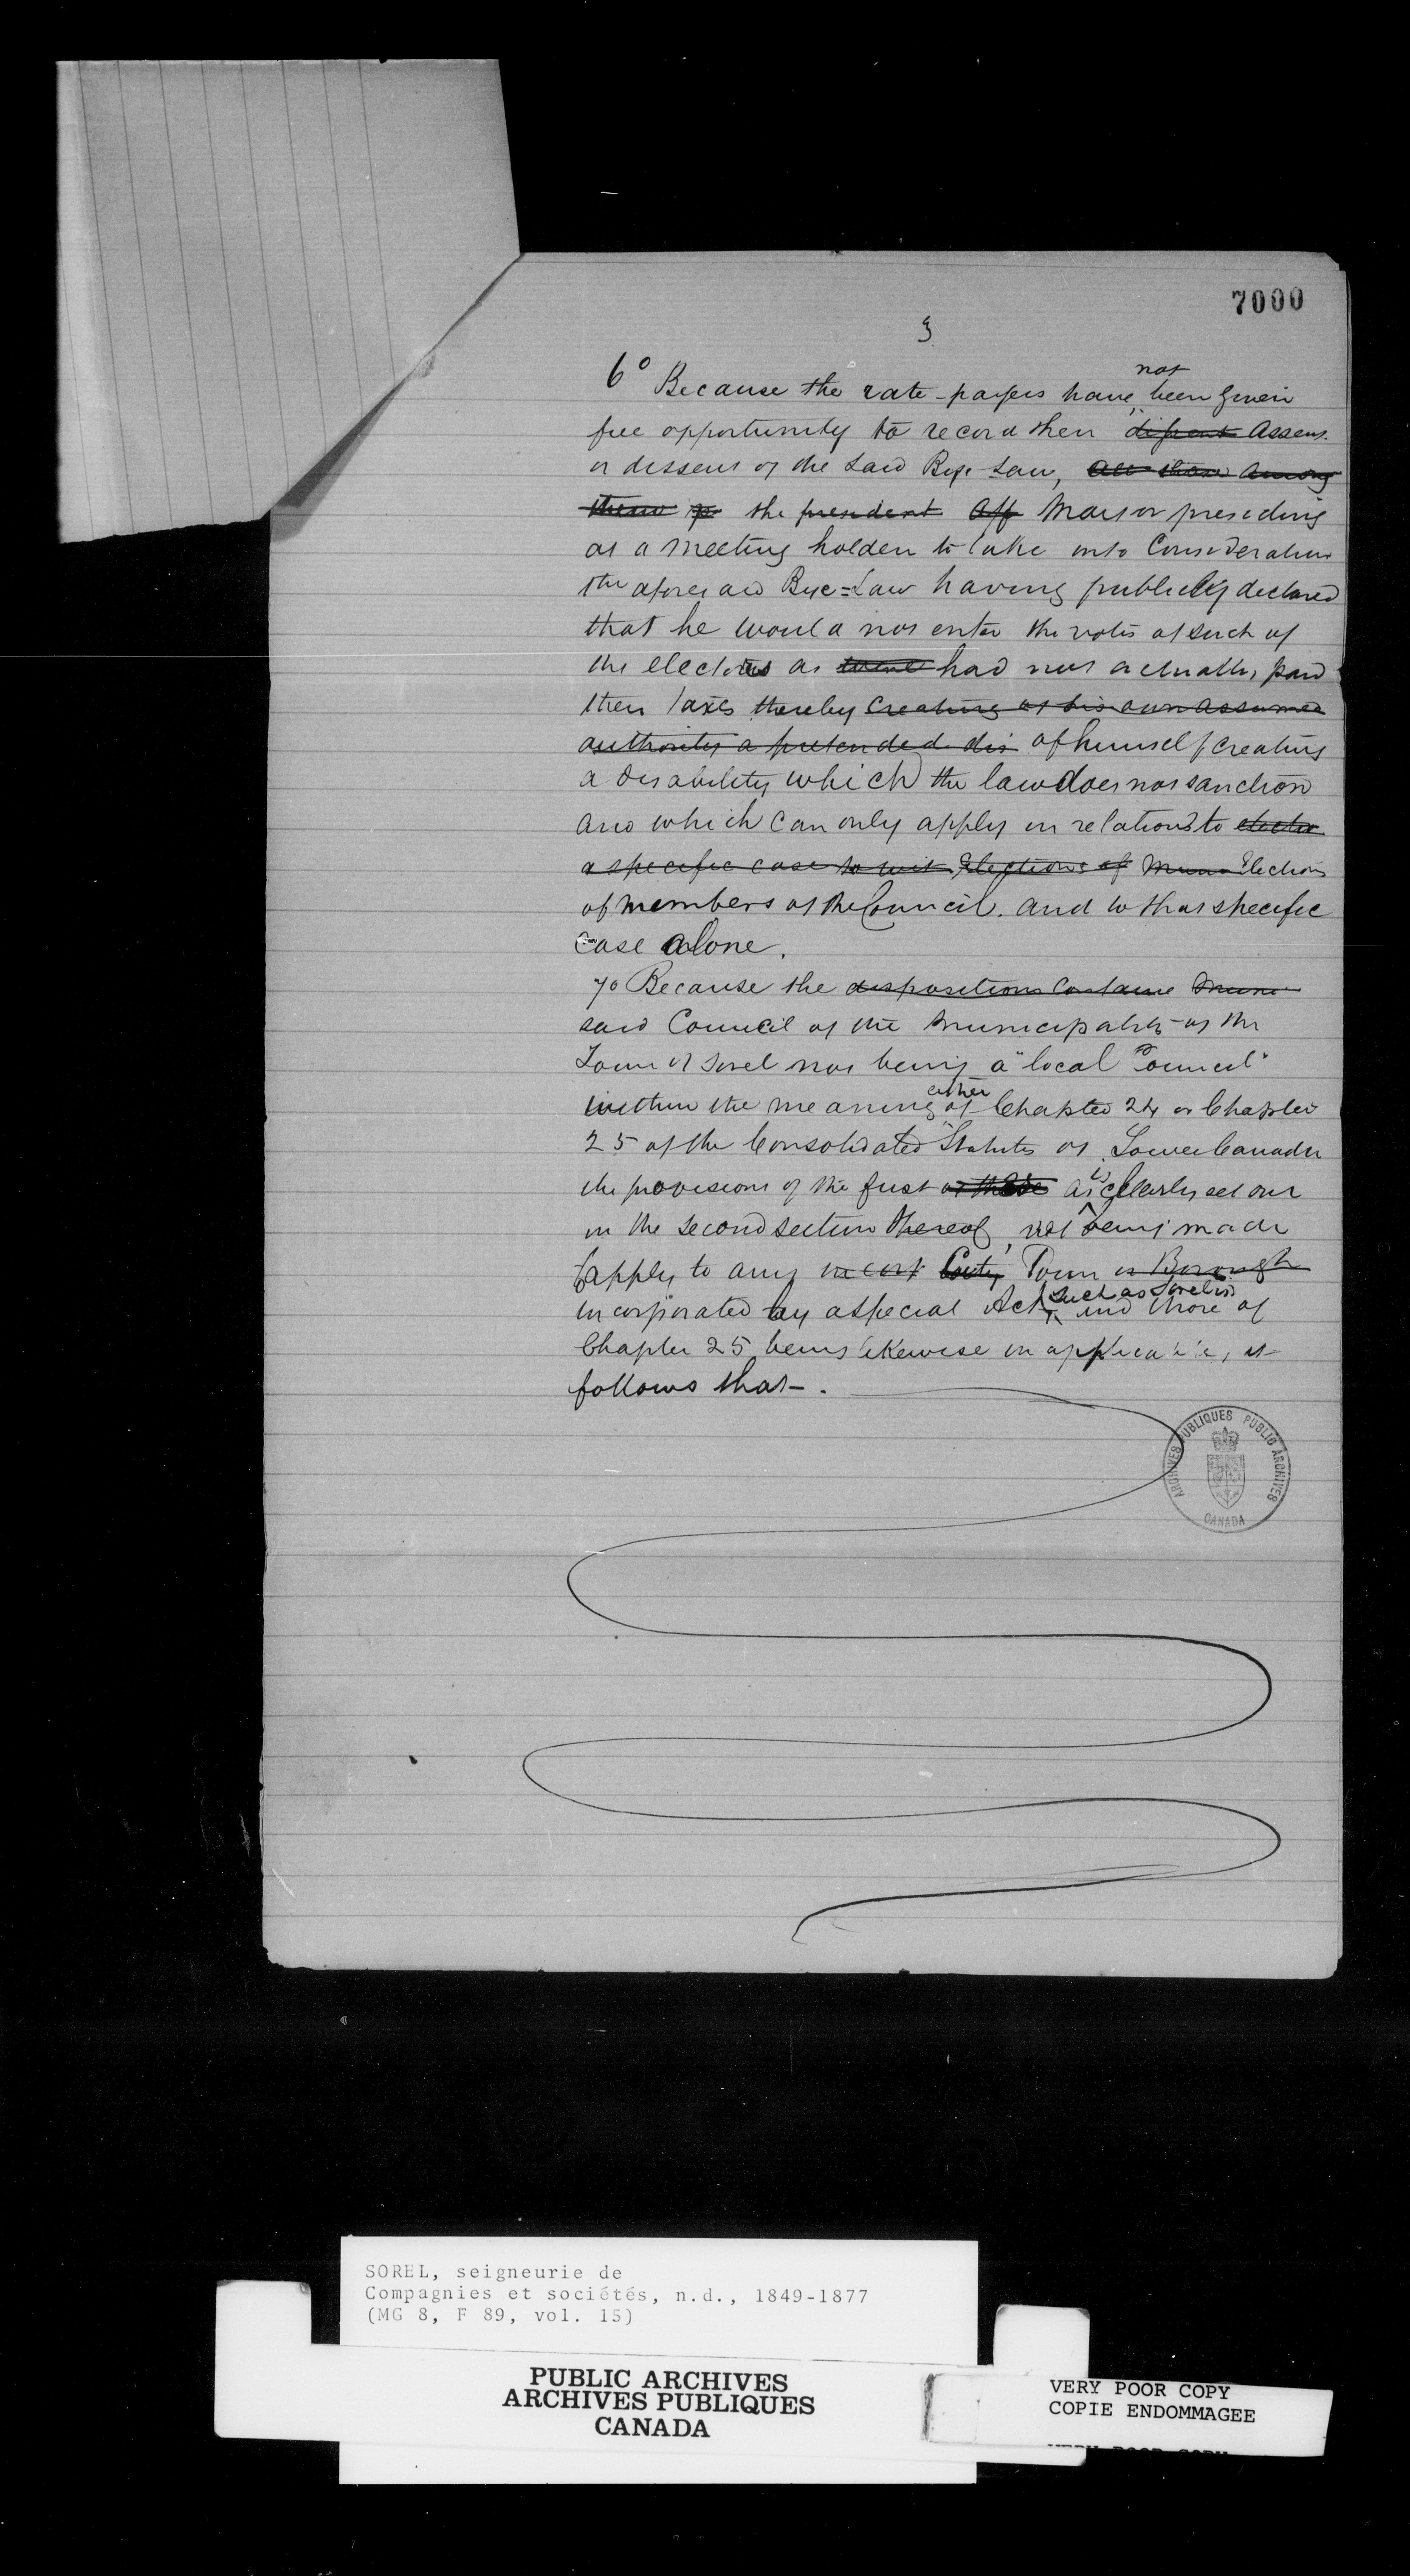 7000
3
6° Because the rate-payers have not been given
free opportunity to record their dissent assent
or dissent of the said Bye Law, all those among
them the president Mayor presiding
at a meeting holden to take into Consideration
the aforesaid Bye=Law having publicly declared
that he would not enter the votes of such of
the electors as were had not actually paid
their taxes thereby creating of his own assumed
authority a pretended dis of himself creating
a disability which the law does not sanction
and which can only apply in relation to electio
a specific case to wit Elections of Mun Elections
of members of the Council. and to that specific
case alone.
7° Because the dispositions contained Muni
said Council of the Municipality of the
Town of Sorel not being a "local Council"
within the meaning of either Chapter 24 or Chapter
25 of the Consolidated Statutes of Lower Canada
the provisions of the first of these as is clearly set out
in the second section thereof, not being made
apply to any incorp City Town or Borough
incorporated by a special Act, such as Sorel is and those of
Chapter 25 being likewise inapplicable, it
follows that.
ARCHIVES PUBLIQUES PUBLIC ARCHIVES
CANADA
SOREL, seigneurie de
Compagnies et sociétés, n.d., 1849-1877
(MG 8, F 89, vol. 15)
PUBLIC ARCHIVES
ARCHIVES PUBLIQUES
CANADA
VERY POOR COPY
COPIE ENDOMMAGEE
VERY POOR COPY